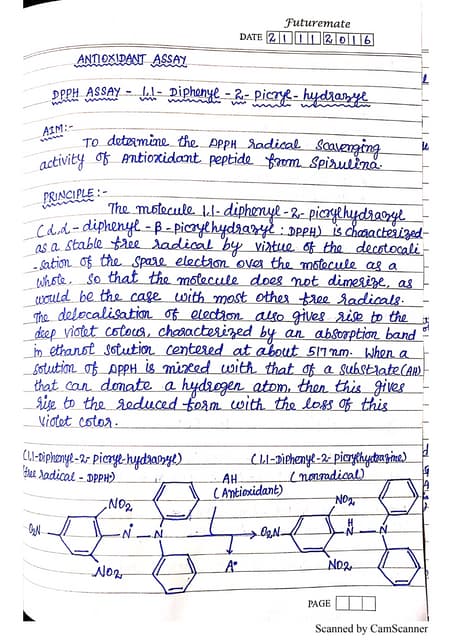 Futuremate
DATE 2 1 1 1 2 0 1 6
ANTIOXIDANT ASSAY
DPPH ASSAY - 1,1- Diphenyl - 2 - Picryl - hydrazyl
AIM:-
To determine the DPPH radical scavenging
activity of Antioxidant peptide from Spirulina.
PRINCIPLE:-
The molecule 1,1-diphenyl-2-picrylhydrazyl
(d,d-diphenyl-β-picrylhydrazyl: DPPH) is characterized
as a stable free radical by virtue of the decolocali
-sation of the spare electron over the molecule as a
whole, so that the molecule does not dimerize, as
would be the case with most other free radicals.
The delocalisation of electron also gives rise to the
deep violet colour, characterized by an absorption band
in ethanol solution centered at about 517nm. When a
solution of DPPH is mixed with that of a substrate (AH)
that can donate a hydrogen atom, then this gives
rise to the reduced form with the loss of this
violet color.
(1,1-Diphenyl-2-picryl-hydrazyl) (1,1-Diphenyl-2-picrylhydrazine)
free radical - DPPH) AH (nonradical)
(Antioxidant)
NO2 NO2
O2N N• N O2N H N N
NO2 A• NO2
PAGE
Scanned by CamScanner